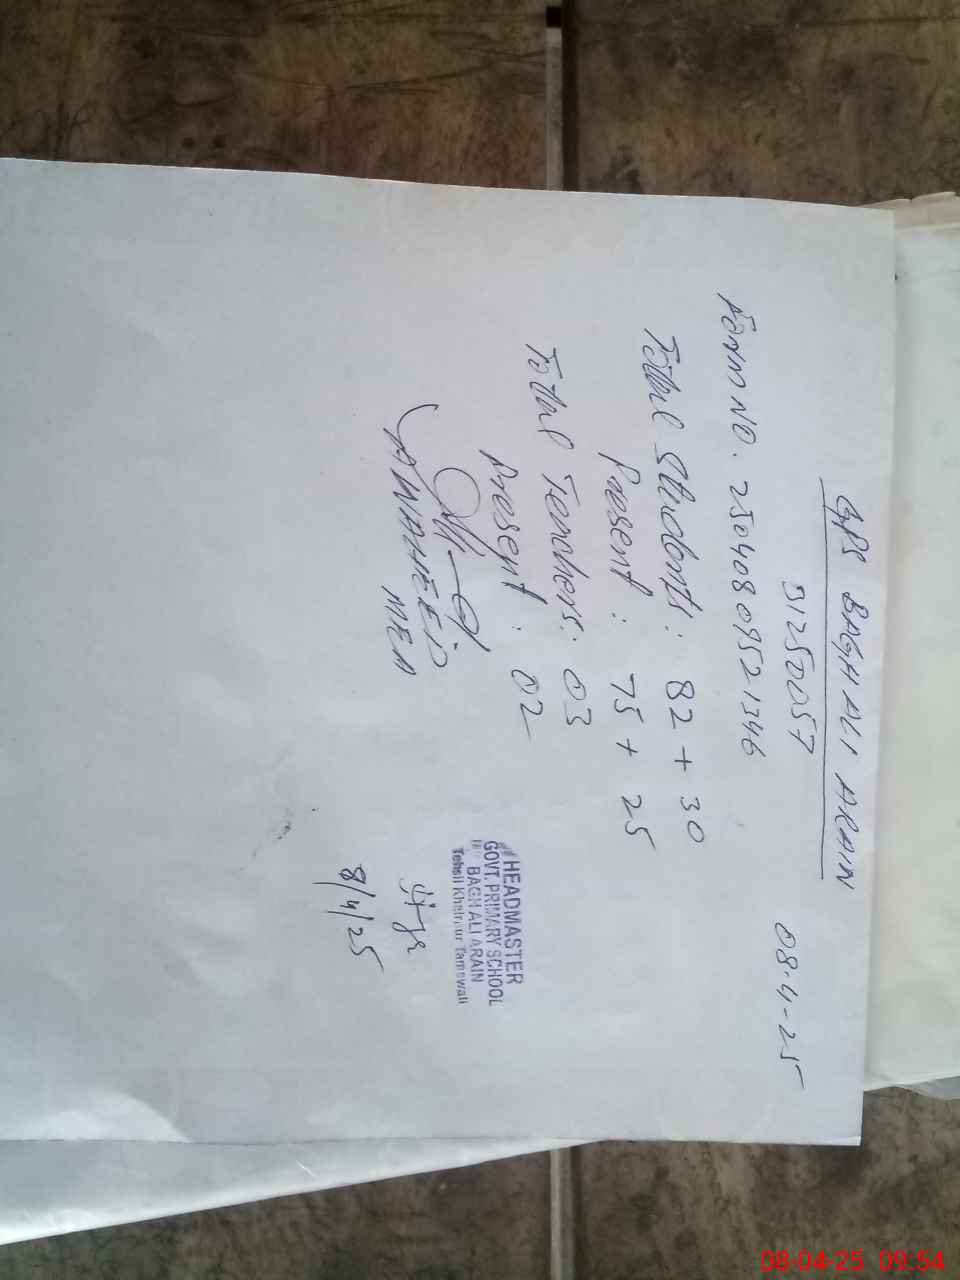 GPS BAGH ALI ARAIN
31250057
08-4-25
Form No. 2504080952 1346
Total Students: 82 + 30
Present : 75 + 25
Total Teachers: 03
Present : 02
A WAHEED
MEA
HEADMASTER
GOVT. PRIMARY SCHOOL
BAGH ALI ARAIN
Tehsil Khairpur Tamewali
8/4/25
08-04-25 09:54